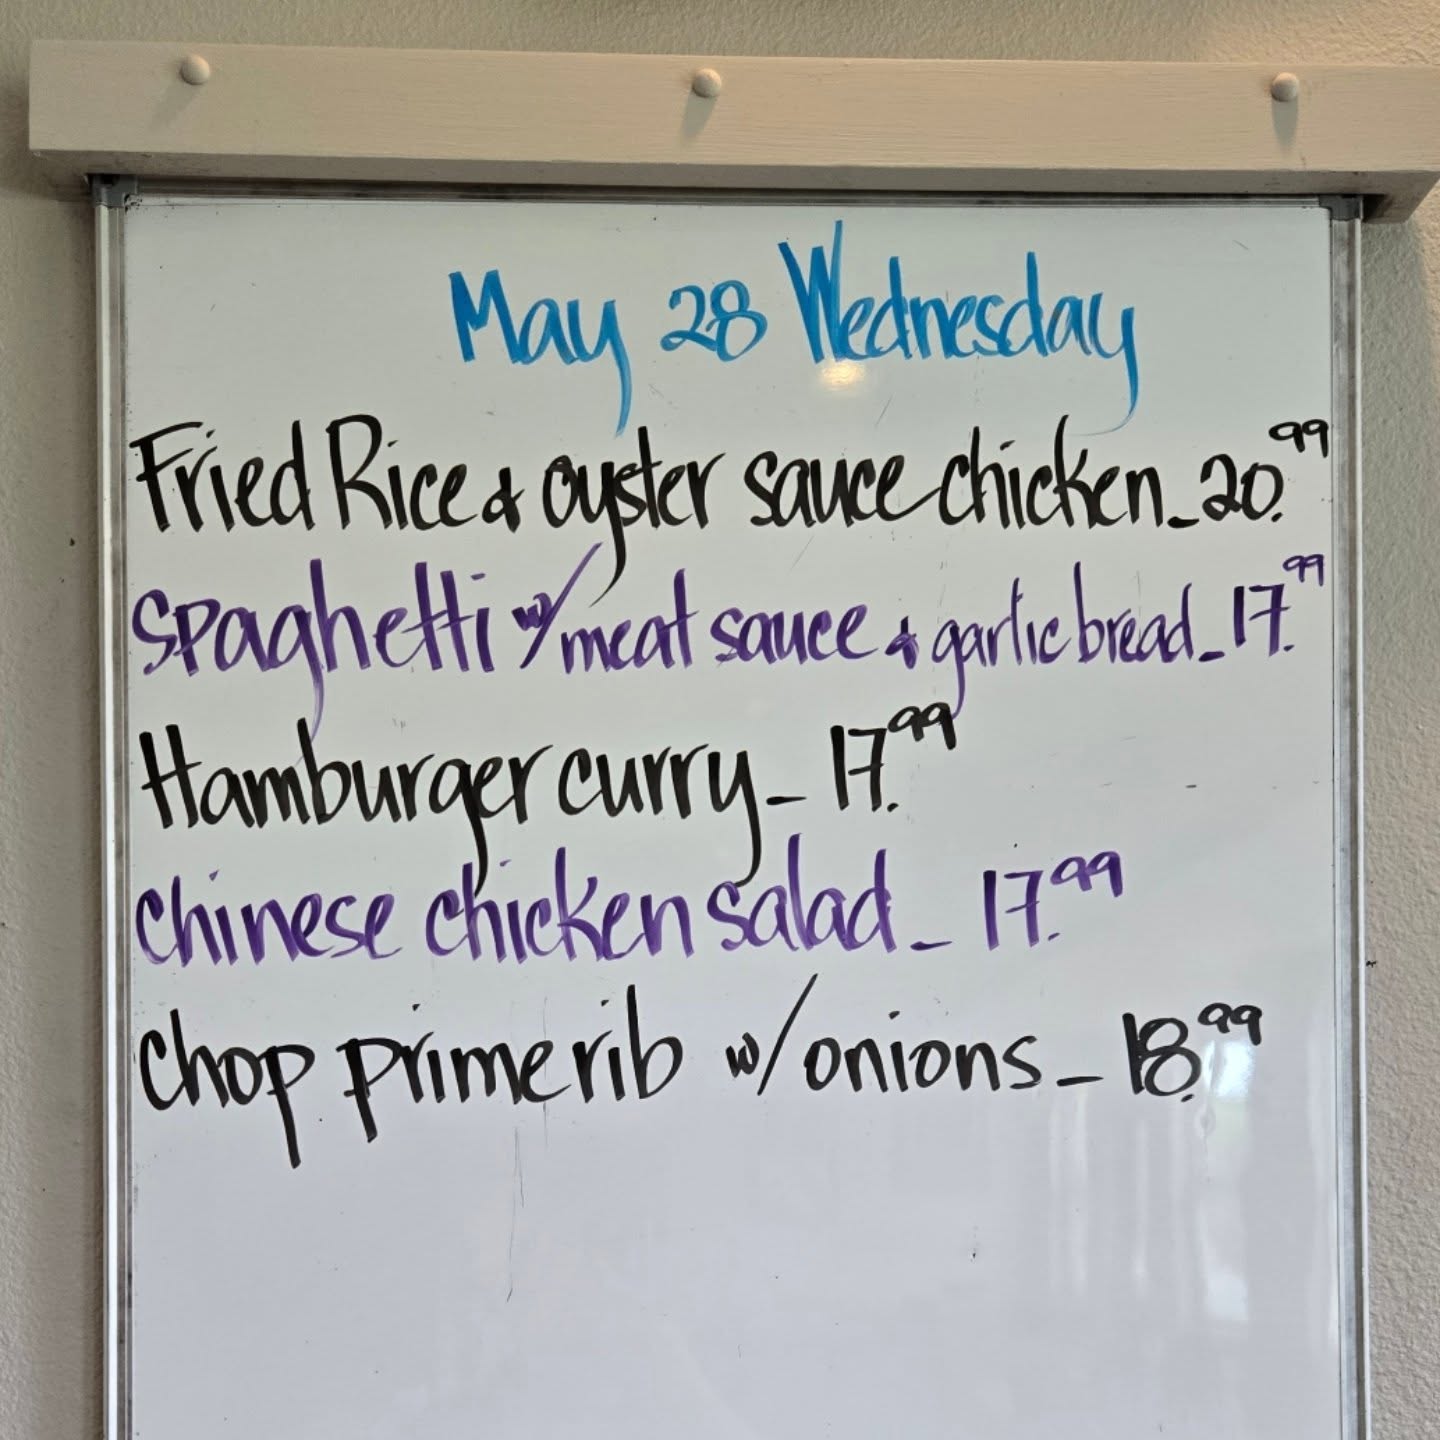 May 28 Wednesday
Fried Rice & oyster sauce chicken - 20.99
Spaghetti w/ meat sauce & garlic bread - 17.99
Hamburger curry - 17.99
Chinese chicken salad - 17.99
Chop prime rib w/ onions - 18.99